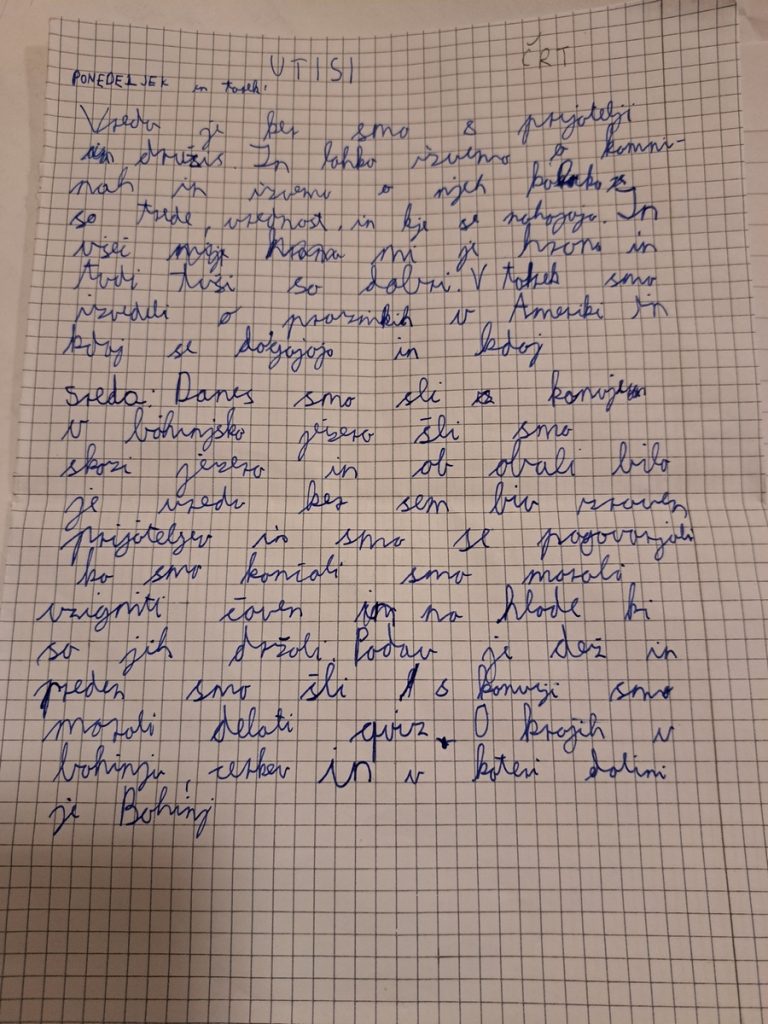 UTISI ČRT
PONEDELJEK in torek:
Vredu je ker smo s prijatelji
in družis. In lahko izvemo o kamni-
nah in izvemo o njeh kako
so trde, vrednost, in kje se nahajajo. In
všeč mi je hrana in
tudi tuši so dobri. V torek smo
izvedeli o praznikih v Ameriki in
kdaj se dogajajo in kdaj
sreda: Danes smo sli s kanujem
v bohinjsko jezero šli smo
skozi jezero in ob obali bilo
je vredu ker sem biv zraven
prijateljev in smo se pogovarjali
ko smo končali smo morali
vzigniti čoven in na hlode ki
so jih držali. Padav je dež in
preden smo šli s kanuji smo
morali delati qviz. O krajih v
bohinju, cerkev in v kateri dolini
je Bohinj